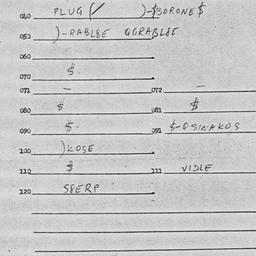 040 PLUG (/ )-$BORONE$
050 )-RABL8E QGRABL8E
060
070 $.
071 - 072 -
080 $ 081 $
090 $. 091 $-QSINAKOS
100 )KOSE
110 $ 111 VIDLE
120 S8ERP